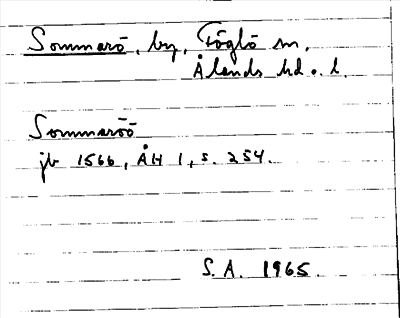 Sommarö, by, Föglö sn,
Ålands hd o. l.
Sommaröö
jb 1566, ÅH 1, s. 254.
S.A. 1965.